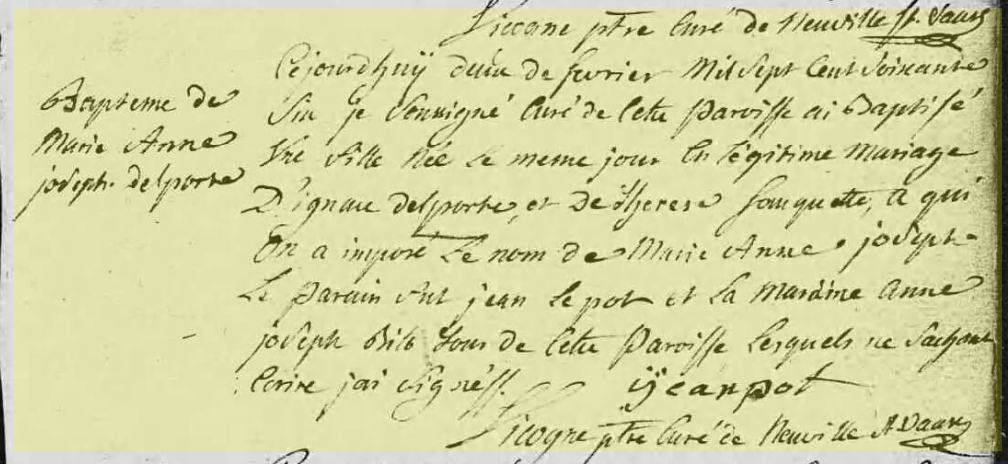 Sicogne ptre Curé de Neuville St. Vaast
Cejourdhuÿ deux de fevrier Mil Sept Cent Soixante
Six je Soussigné Curé de Cette Paroisse ai Baptisé
Une fille Née Le meme jour En légitime Mariage
D'ignace delporte, et De therese fouquette, a qui
On a imposé Le nom de Marie Anne joseph
Le Parain fut jean Le pot et La Maraine Anne
joseph tous de Cette Paroisse Lesquels ne Sachant
Ecrire jai Signé//.
ÿeanpot
Sicogne ptre Curé de Neuville St Vaast
Bapteme de
Marie Anne
joseph delporte